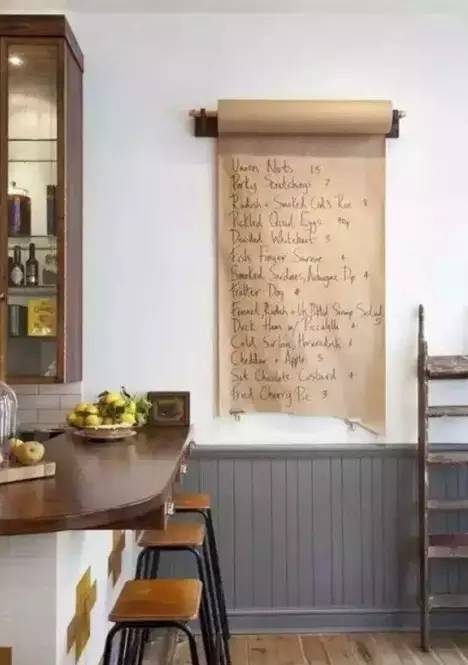 Union Nuts 1.5
Porky Scratchings 2
Radish + Smoked Cod's Roe
Pickled Quail Eggs 90p
Devilled Whitebait 3
Fish Finger Sarnie 4
Smoked Sardines, Aubergine Dip 4
Fritter Dog 4
Fennel, Radish + Shrimp Salad
Duck Ham w/ Piccalilli 4
Cold Sirloin, Horseradish
Cheddar + Apple 5
Set Chocolate Custard 4
Fried Cherry Pie 3